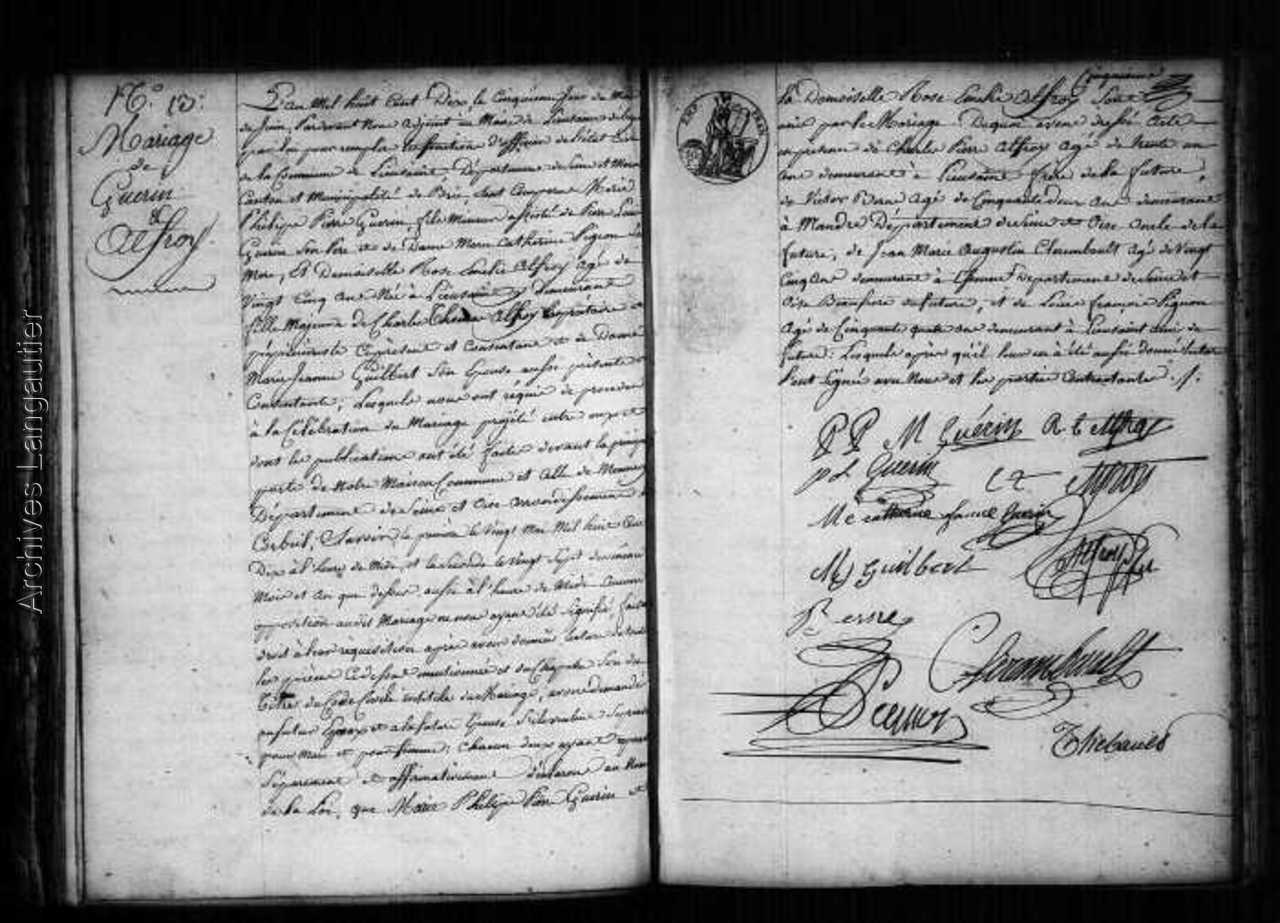 N.° 13.
Mariage
de
Guerin
&
Alfroy
L'an Mil huit Cent Dix, le Cinquieme Jour du Mois
de Juin, Pardevant Nous Adjoint au Maire de Lieusaint delegué
par lui pour remplir les fonction d'officier de l'état Civil
de la Commune de Lieusaint, Département de Seine et Marne
Canton et Municipalité de Brie, Sont Comparus Marie
Philippe Pierre Guerin, fils Mineur assisté de Pierre Louis
Guerin Son Père et de Dame Marie Catherine Pignon Sa
Mere, Et Demoiselle Rose Emelie Alfroy Agé de
Vingt Cinq Ans Née à Lieusaint y Demeurant
fille Majeure de Charles Alfroy Propriétaire et
pépinieriste Cy présent et Consentant et de Dame
Marie Jeanne Guilbert Son Epouse aussi présente et
Consentante; Lesquels nous ont réquis de proceder
à la Célébration du Mariage projété entre eux et
dont les publications ont été faites devant la principale
porte de Notre Maison Commune et Celle de Mennecy
Département de Seine et Oise arrondissement de
Corbeil, Savoir, la premiere le Vingt Mai Mil huit Cent
Dix à l'heure de Midi, et la Seconde le Vingt Sept des même
Mois et An que dessus aussi à l'heure de Midi. Aucune
opposition audit Mariage ne nous ayant été Signifié, faisant
droit à leur requisition après avoir donné lecture de toutes
les pièces Ci dessus mentionnées et du Chapitre Six du
Titre du Code Civil intitulé du Mariage, avons demandé
au futur Epoux et à la future Epouse S'ils veulent Se prendre
pour Mari et pour femme; Chacun d'eux ayant repondu
Séparement et affirmativement Déclarons au Nom
de la Loi, que Marie Philippe Pierre Guerin et
La Demoiselle Rose Emelie Alfroy Sont
unis par le Mariage. De quoi avons dressé Acte
en présence de Charles Pierre Alfroy Agé de trente un
ans demeurant à Lieusaint frere de la future,
de Victor Berne Agé de Cinquante deux Ans demeurant
à Mandre Département de Seine et Oise oncle de la
future, de Jean Marie Augustin Clerambault Agé de Vingt
Cinq Ans demeurant à Essonne Département de Seine et
Oise Beaufrere du future, et de Louis françois Pignon
Agé de Cinquante quatre ans demeurant à Lieusaint du
future; Lesquels après qu'il leur en à été aussi donné lecture
l'ont Signé avec Nous et les parties Contractantes ./.
P P M Guérin R E Alfroy
p L Guerin C Alfroy
M C catherine Guerin
M J Guilbert Alfroy
Berne
Clerambault
Pignon
Thiebault
Archives Langautier